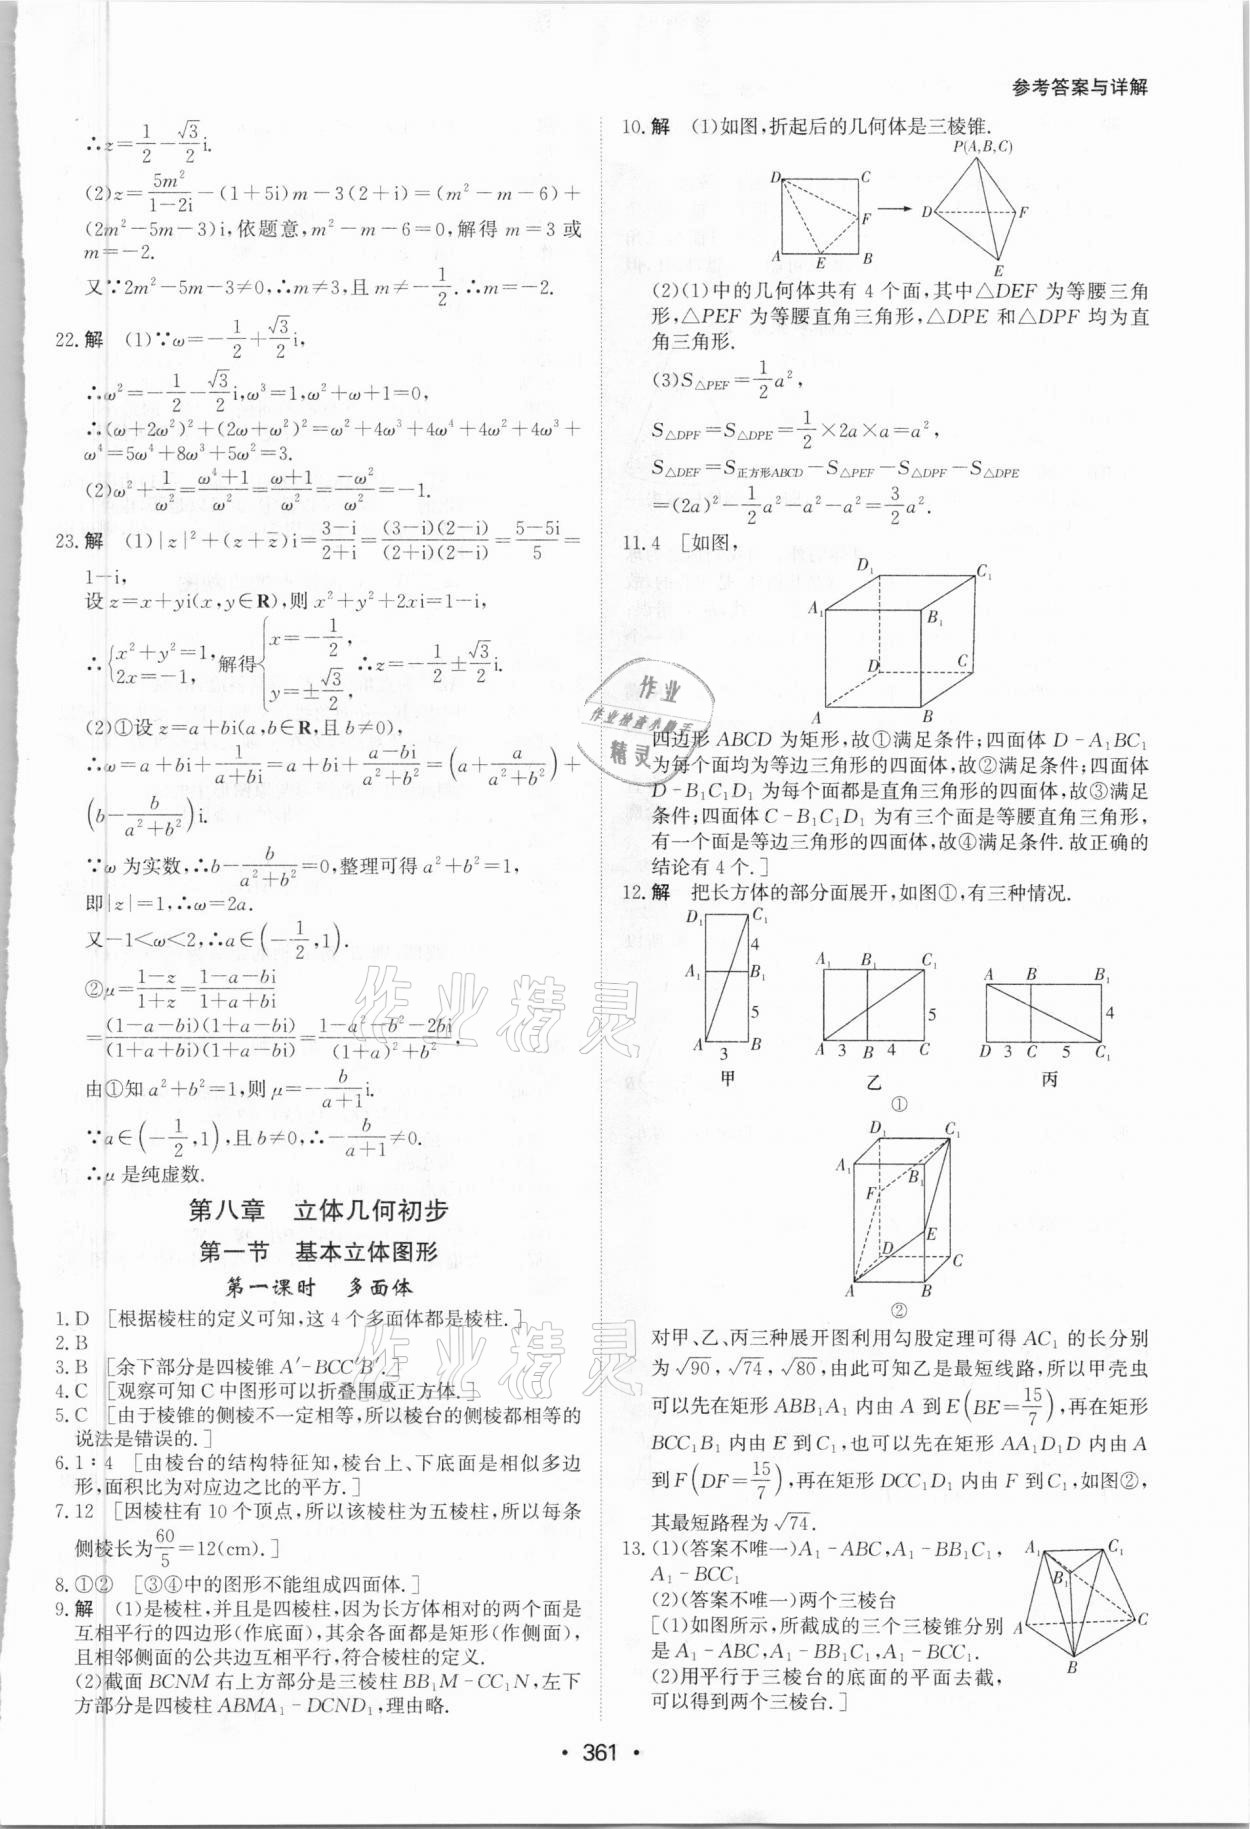 参考答案与详解
∴z=1/2-√3/2 i.
(2)z=5m²/(1-2i)-(1+5i)m-3(2+i)=(m²-m-6)+
(2m²-5m-3)i,依题意,m²-m-6=0,解得 m=3 或
m=-2.
又∵2m²-5m-3≠0,∴m≠3,且 m≠-1/2.∴m=-2.
22.解 (1)∵ω=-1/2+√3/2 i,
∴ω²=-1/2-√3/2 i,ω³=1,ω²+ω+1=0,
∴(ω+2ω²)²+(2ω+ω²)²=ω²+4ω³+4ω⁴+4ω²+4ω³+
ω⁴=5ω⁴+8ω³+5ω²=3.
(2)ω²+1/ω²=(ω⁴+1)/ω²=(ω+1)/ω²=-ω²/ω²=-1.
23.解 (1)|z|²+(z+z̄)i=(3-i)/(2+i)=(3-i)(2-i)/(2+i)(2-i)=(5-5i)/5=
1-i,
设 z=x+yi(x,y∈R),则 x²+y²+2xi=1-i,
∴{x²+y²=1, 2x=-1, 解得{x=-1/2, y=±√3/2, ∴z=-1/2±√3/2 i.
(2)①设 z=a+bi(a,b∈R,且 b≠0),
∴ω=a+bi+1/(a+bi)=a+bi+(a-bi)/(a²+b²)=(a+a/(a²+b²))+
(b-b/(a²+b²))i.
∵ω 为实数,∴b-b/(a²+b²)=0,整理可得 a²+b²=1,
即|z|=1,∴ω=2a.
又-1<ω<2,∴a∈(-1/2,1).
②μ=(1-z)/(1+z)=(1-a-bi)/(1+a+bi)
=(1-a-bi)(1+a-bi)/(1+a+bi)(1+a-bi)=(1-a²-b²-2bi)/((1+a)²+b²).
由①知 a²+b²=1,则 μ=-b/(a+1) i.
∵a∈(-1/2,1),且 b≠0,∴-b/(a+1)≠0.
∴μ 是纯虚数.
第八章 立体几何初步
第一节 基本立体图形
第一课时 多面体
1.D [根据棱柱的定义可知,这 4 个多面体都是棱柱.]
2.B
3.B [余下部分是四棱锥 A′-BCC′B′.]
4.C [观察可知 C 中图形可以折叠围成正方体.]
5.C [由于棱锥的侧棱不一定相等,所以棱台的侧棱都相等的
说法是错误的.]
6.1∶4 [由棱台的结构特征知,棱台上、下底面是相似多边
形,面积比为对应边之比的平方.]
7.12 [因棱柱有 10 个顶点,所以该棱柱为五棱柱,所以每条
侧棱长为60/5=12(cm).]
8.①② [③④中的图形不能组成四面体.]
9.解 (1)是棱柱,并且是四棱柱,因为长方体相对的两个面是
互相平行的四边形(作底面),其余各面都是矩形(作侧面),
且相邻侧面的公共边互相平行,符合棱柱的定义.
(2)截面 BCNM 右上方部分是三棱柱 BB₁M-CC₁N,左下
方部分是四棱柱 ABMA₁-DCND₁,理由略.
10.解 (1)如图,折起后的几何体是三棱锥.
P(A,B,C)
D C
F D F
A E B E
(2)(1)中的几何体共有 4 个面,其中△DEF 为等腰三角
形,△PEF 为等腰直角三角形,△DPE 和△DPF 均为直
角三角形.
(3)S△PEF=1/2a²,
S△DPF=S△DPE=1/2×2a×a=a²,
S△DEF=S正方形ABCD-S△PEF-S△DPF-S△DPE
=(2a)²-1/2a²-a²-a²=3/2a².
11.4 [如图,
D₁ C₁
A₁ B₁
D C
A B
四边形 ABCD 为矩形,故①满足条件;四面体 D-A₁BC₁
为每个面均为等边三角形的四面体,故②满足条件;四面体
D-B₁C₁D₁ 为每个面都是直角三角形的四面体,故③满足
条件;四面体 C-B₁C₁D₁ 为有三个面是等腰直角三角形,
有一个面是等边三角形的四面体,故④满足条件.故正确的
结论有 4 个.]
12.解 把长方体的部分面展开,如图①,有三种情况.
D₁ C₁
4
A₁ B₁
5
A 3 B
甲
A₁ B₁ C₁
5
A 3 B 4 C
乙
A B B₁
4
D 3 C 5 C₁
丙
①
D₁ C₁
A₁ B₁
F
E
D C
A B
②
对甲、乙、丙三种展开图利用勾股定理可得 AC₁ 的长分别
为 √90,√74,√80,由此可知乙是最短线路,所以甲壳虫
可以先在矩形 ABB₁A₁ 内由 A 到 E(BE=15/7),再在矩形
BCC₁B₁ 内由 E 到 C₁,也可以先在矩形 AA₁D₁D 内由 A
到 F(DF=15/7),再在矩形 DCC₁D₁ 内由 F 到 C₁,如图②,
其最短路程为 √74.
13.(1)(答案不唯一)A₁-ABC,A₁-BB₁C₁,
A₁-BCC₁
(2)(答案不唯一)两个三棱台
[(1)如图所示,所截成的三个三棱锥分别
是 A₁-ABC,A₁-BB₁C₁,A₁-BCC₁.
(2)用平行于三棱台的底面的平面去截,
可以得到两个三棱台.]
A₁ C₁
B₁
A C
B
作业
作业检查小助手
精灵
作业精灵
作业精灵
• 361 •